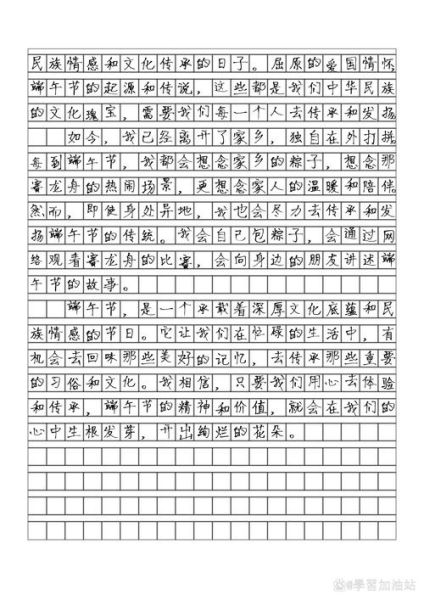 民族情感和文化传承的日子。屈原的爱国情怀,
端午节的起源和传说,这些都是我们中华民族
的文化瑰宝,需要我们每一个人去传承和发扬
如今,我已经离开了家乡,独自在外打拼
每到端午节,我都会想念家乡的粽子,想念那
赛龙舟的热闹场景,更想念家人的温暖和陪伴。
然而,即使身处异地,我也会尽力去传承和发
扬端午节的传统。我会自己包粽子,会通过网
络观看赛龙舟的比赛,会向身边的朋友讲述端
午节的故事。
端午节,是一个承载着深厚文化底蕴和民
族情感的节日。它让我们在忙碌的生活中,有
机会去回味那些美好的记忆,去传承那些重要
的习俗和文化。我相信,只要我们用心去体验
和传承,端午节的精神和价值,就会在我们的
心中生根发芽,开出绚烂的花朵。
@學習加油站